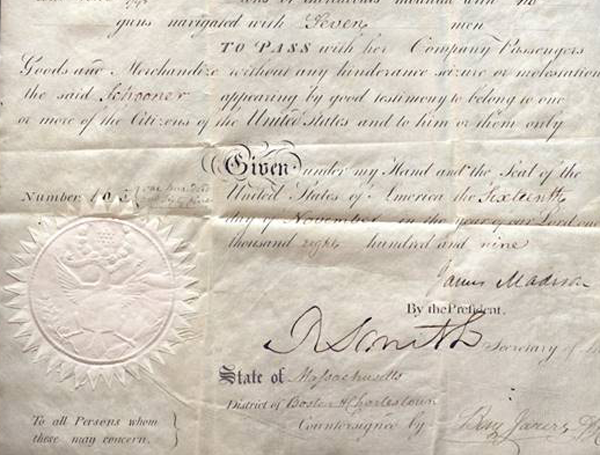 guns navigated with Seven men
TO PASS with her Company Passengers
Goods and Merchandize without any hinderance seizure or molestation
the said Schooner appearing by good testimony to belong to one
or more of the Citizens of the United States and to him or them only
Given under my Hand and the Seal of the
United States of America the Sixteenth
day of November in the year of our Lord one
thousand eight hundred and nine
Number
James Madison
By the President.
R Smith Secretary of
State of Massachusetts
District of Boston & Charlestown
Countersigned by
To all Persons whom
these may concern.